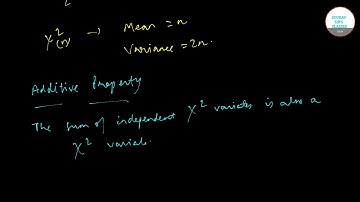 2
χ²(n) → Mean = n
Variance = 2n.
Additive Property
The sum of independent χ² variates is also a
χ² variate.